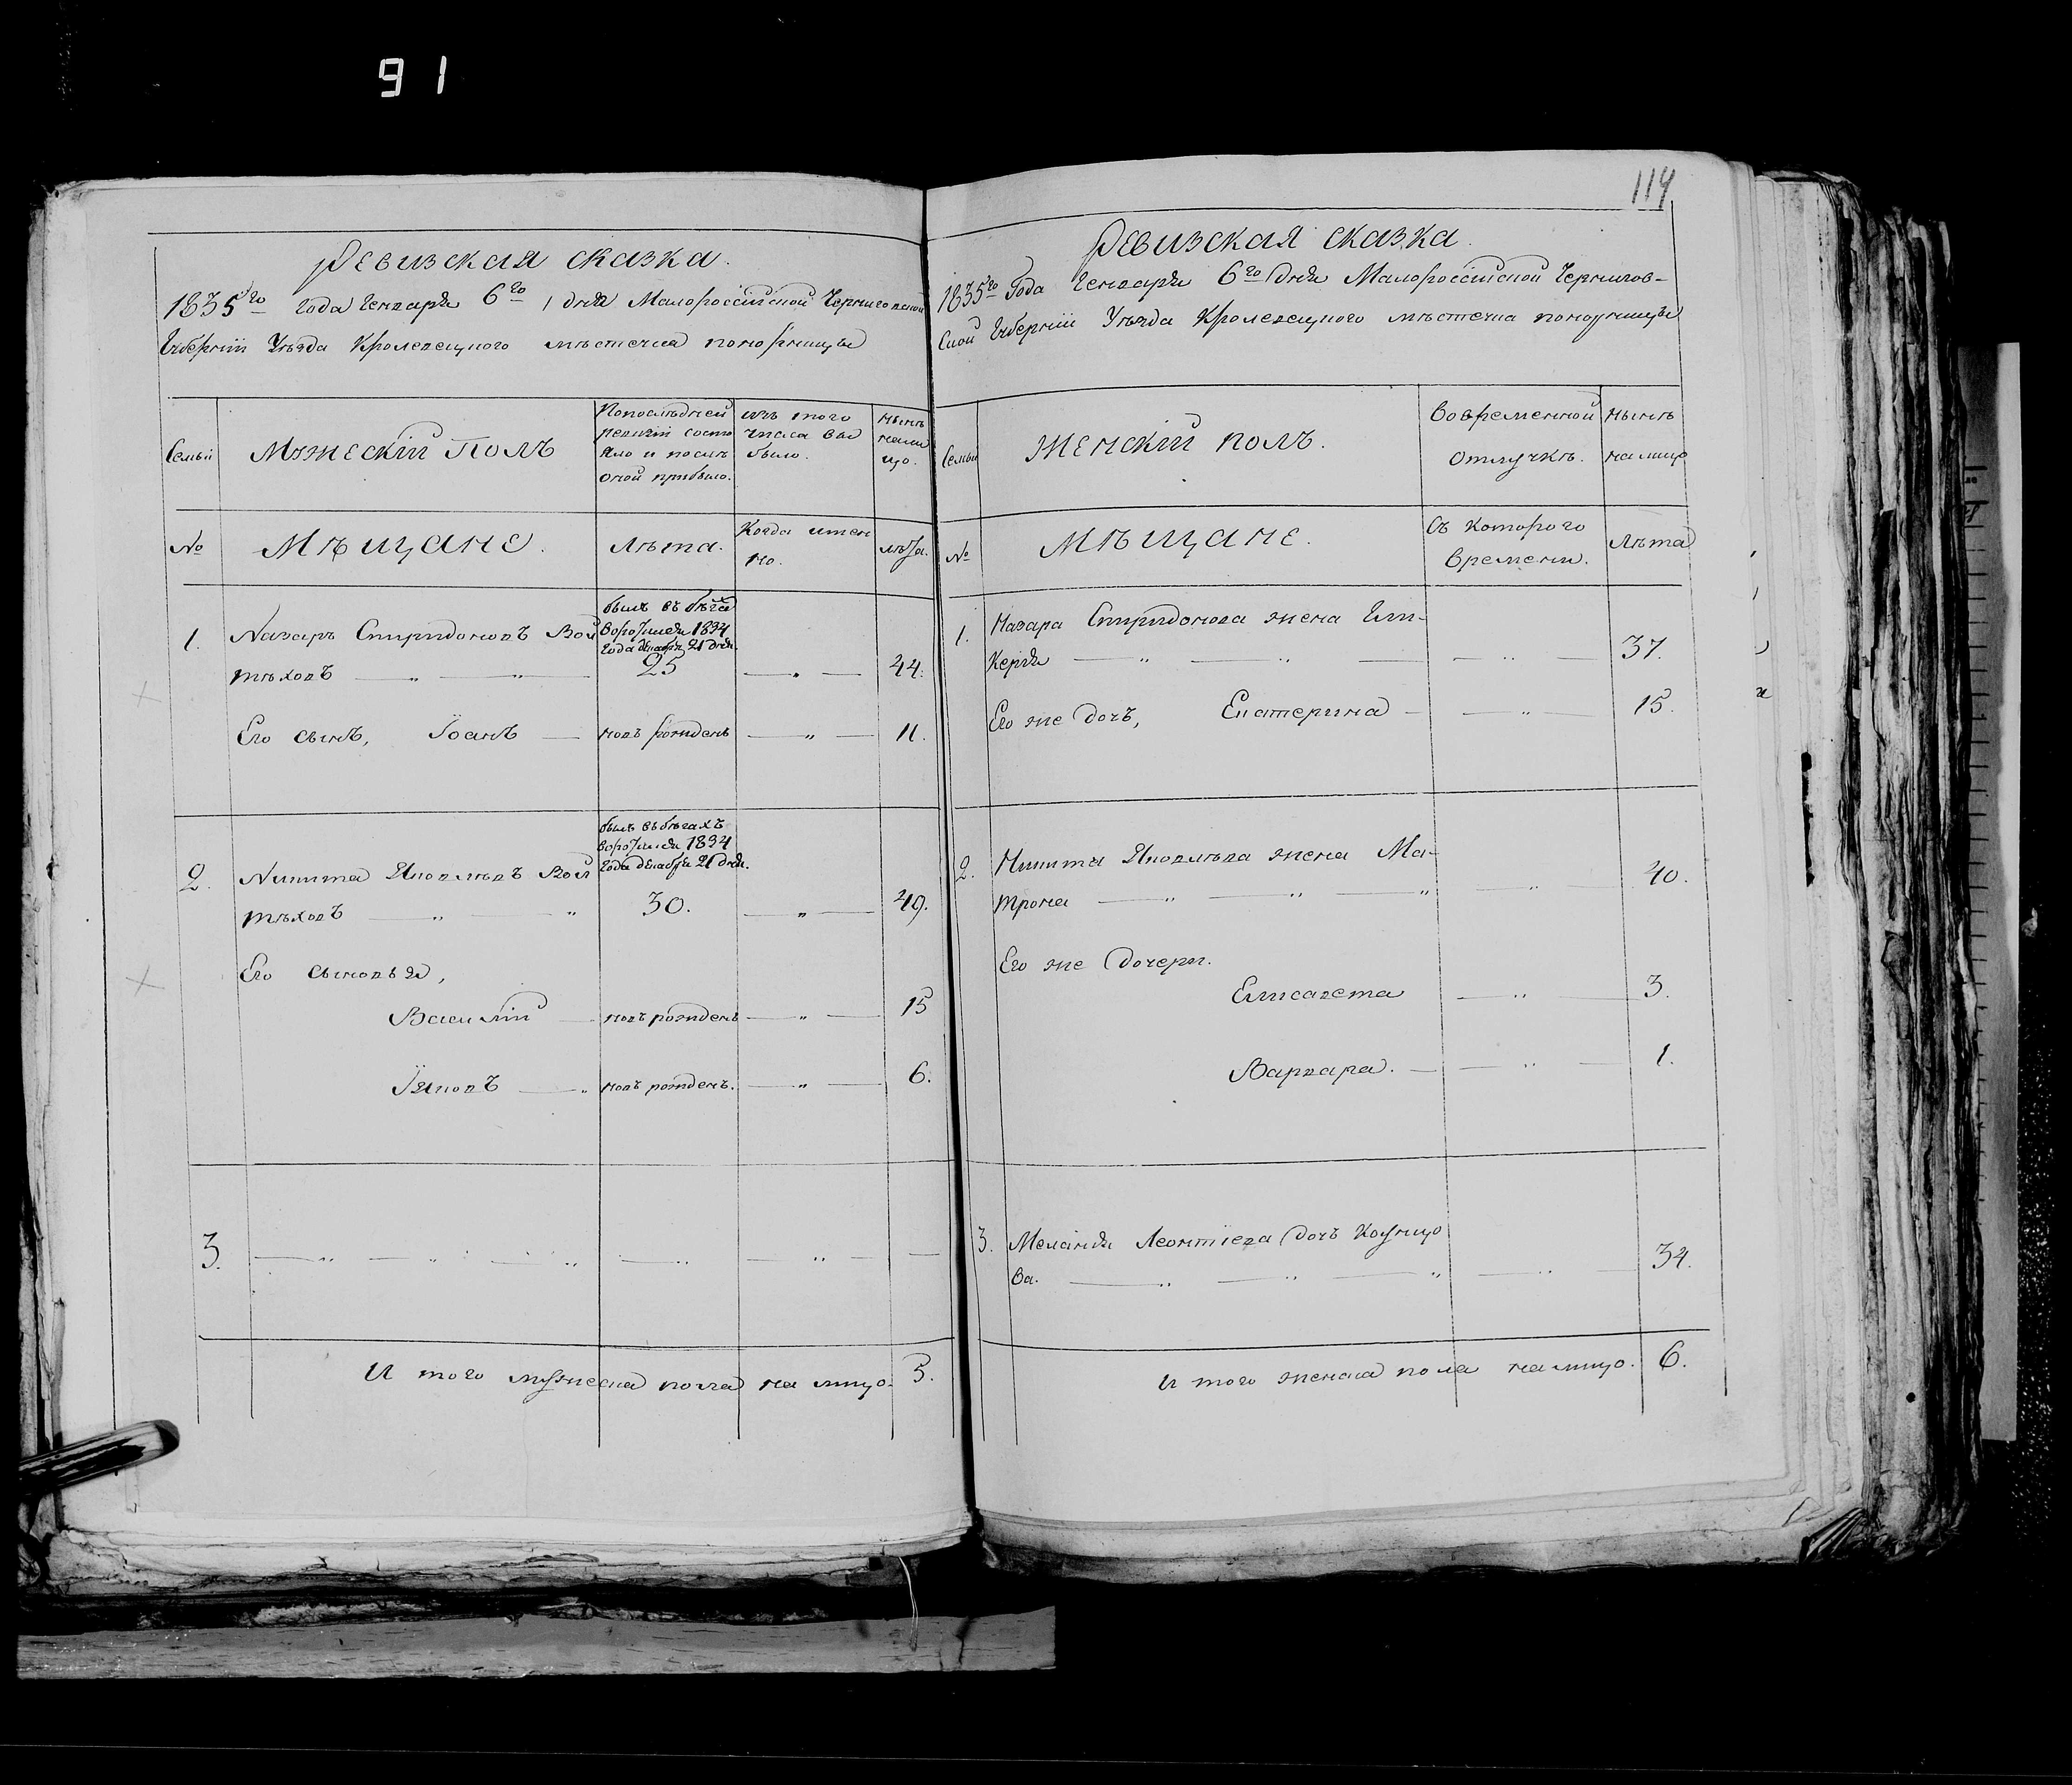 91
Ревизская сказка.
1835го года Генваря 6го дня Малороссійской Черниговской
Губерніи Уѣзда Кролевецкого мѣстечка понорницы
Семьи
Мужескій Полъ
Попослѣдней
ревизіи состо
яло и послѣ
оной прибыло.
изъ того
числа вы
было.
нынѣ
нали
цо.
№
Мѣщане.
Лѣта.
Когда имен
но.
лѣта.
1.
Назаръ Спиридоновъ Вой
тѣховъ
былъ въ бѣгах
воротился 1834
года декабря 21 дня.
25
44.
Его сынъ, Іоанъ
новъ рожденъ
11.
2.
Никита Яковлевъ Вой
тѣховъ
былъ въ бѣгахъ
воротился 1834
года декабря 21 дня.
30.
49.
Его сыновья,
Василій
новъ рожденъ
15
Іяковъ
новъ рожденъ.
6.
3.
И того мужеска пола на лицо. 5.
114
Ревизская сказка.
1835го Года Генваря 6го дня Малороссійской Чернигов-
ской Губерніи Уѣзда Кролевецкого мѣстечка понорницы
Семьи
Женскій полъ.
Вовременной
отлучкѣ.
нынѣ
налицо
№
Мѣщане.
Съ которого
времени.
Лѣта
1.
Назара Спиридонова жена Гли-
керія
37.
Его же дочъ, Екатерина
15.
2.
Никиты Яковлева жена Ма-
трона
40.
Его же дочери.
Елисавета
3.
Варвара.
1.
3.
Меланія Леонтіева дочъ
ва.
34.
И того женска пола налицо. 6.